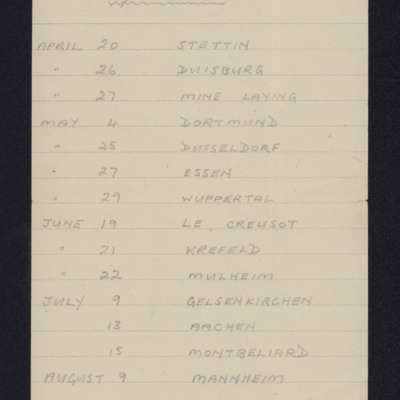 APRIL 20 STETTIN
" 26 DUISBURG
" 27 MINE LAYING
MAY 4 DORTMUND
" 25 DUSSELDORF
" 27 ESSEN
" 29 WUPPERTAL
JUNE 19 LE, CREUSOT
" 21 KREFELD
" 22 MULHEIM
JULY 9 GELSENKIRCHEN
13 AACHEN
15 MONTBELIARD
AUGUST 9 MANNHEIM